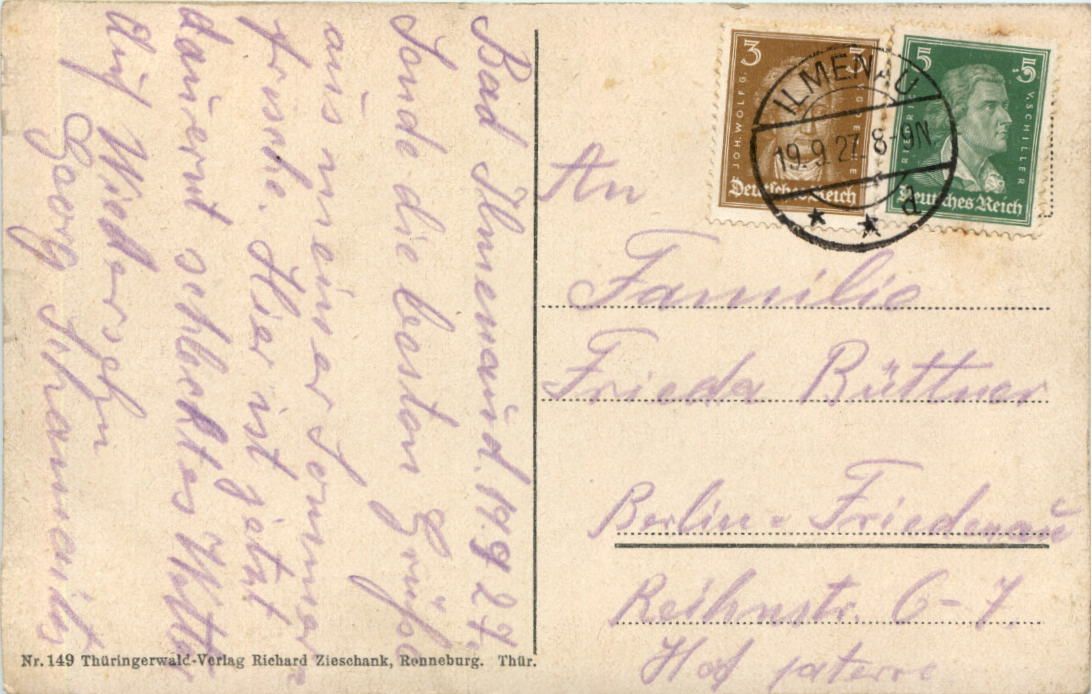 Bad Ilmenau d. 19.9.27.
Sende die besten Grüße
aus meiner Sommer
frische. Hier ist jetzt
dauernt schlechtes Wetter
Auf Wiedersehn
Georg
3 3
JOH. WOLFG. V. GOETHE
Deutsches Reich
5 5
FRIEDRICH V. SCHILLER
Deutsches Reich
ILMENAU
19.9.27. 8-9N.
* * d
An
Familie
Frieda Büttner
Berlin-Friedenau
Reihnstr. 6-7.
Hof paterre
Nr. 149 Thüringerwald-Verlag Richard Zieschank, Ronneburg. Thür.